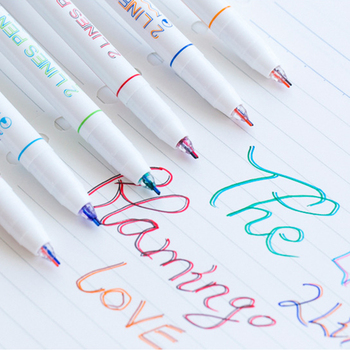 2 LINES PEN
2 LINES PEN
2 LINE
The
flamingo
LOVE